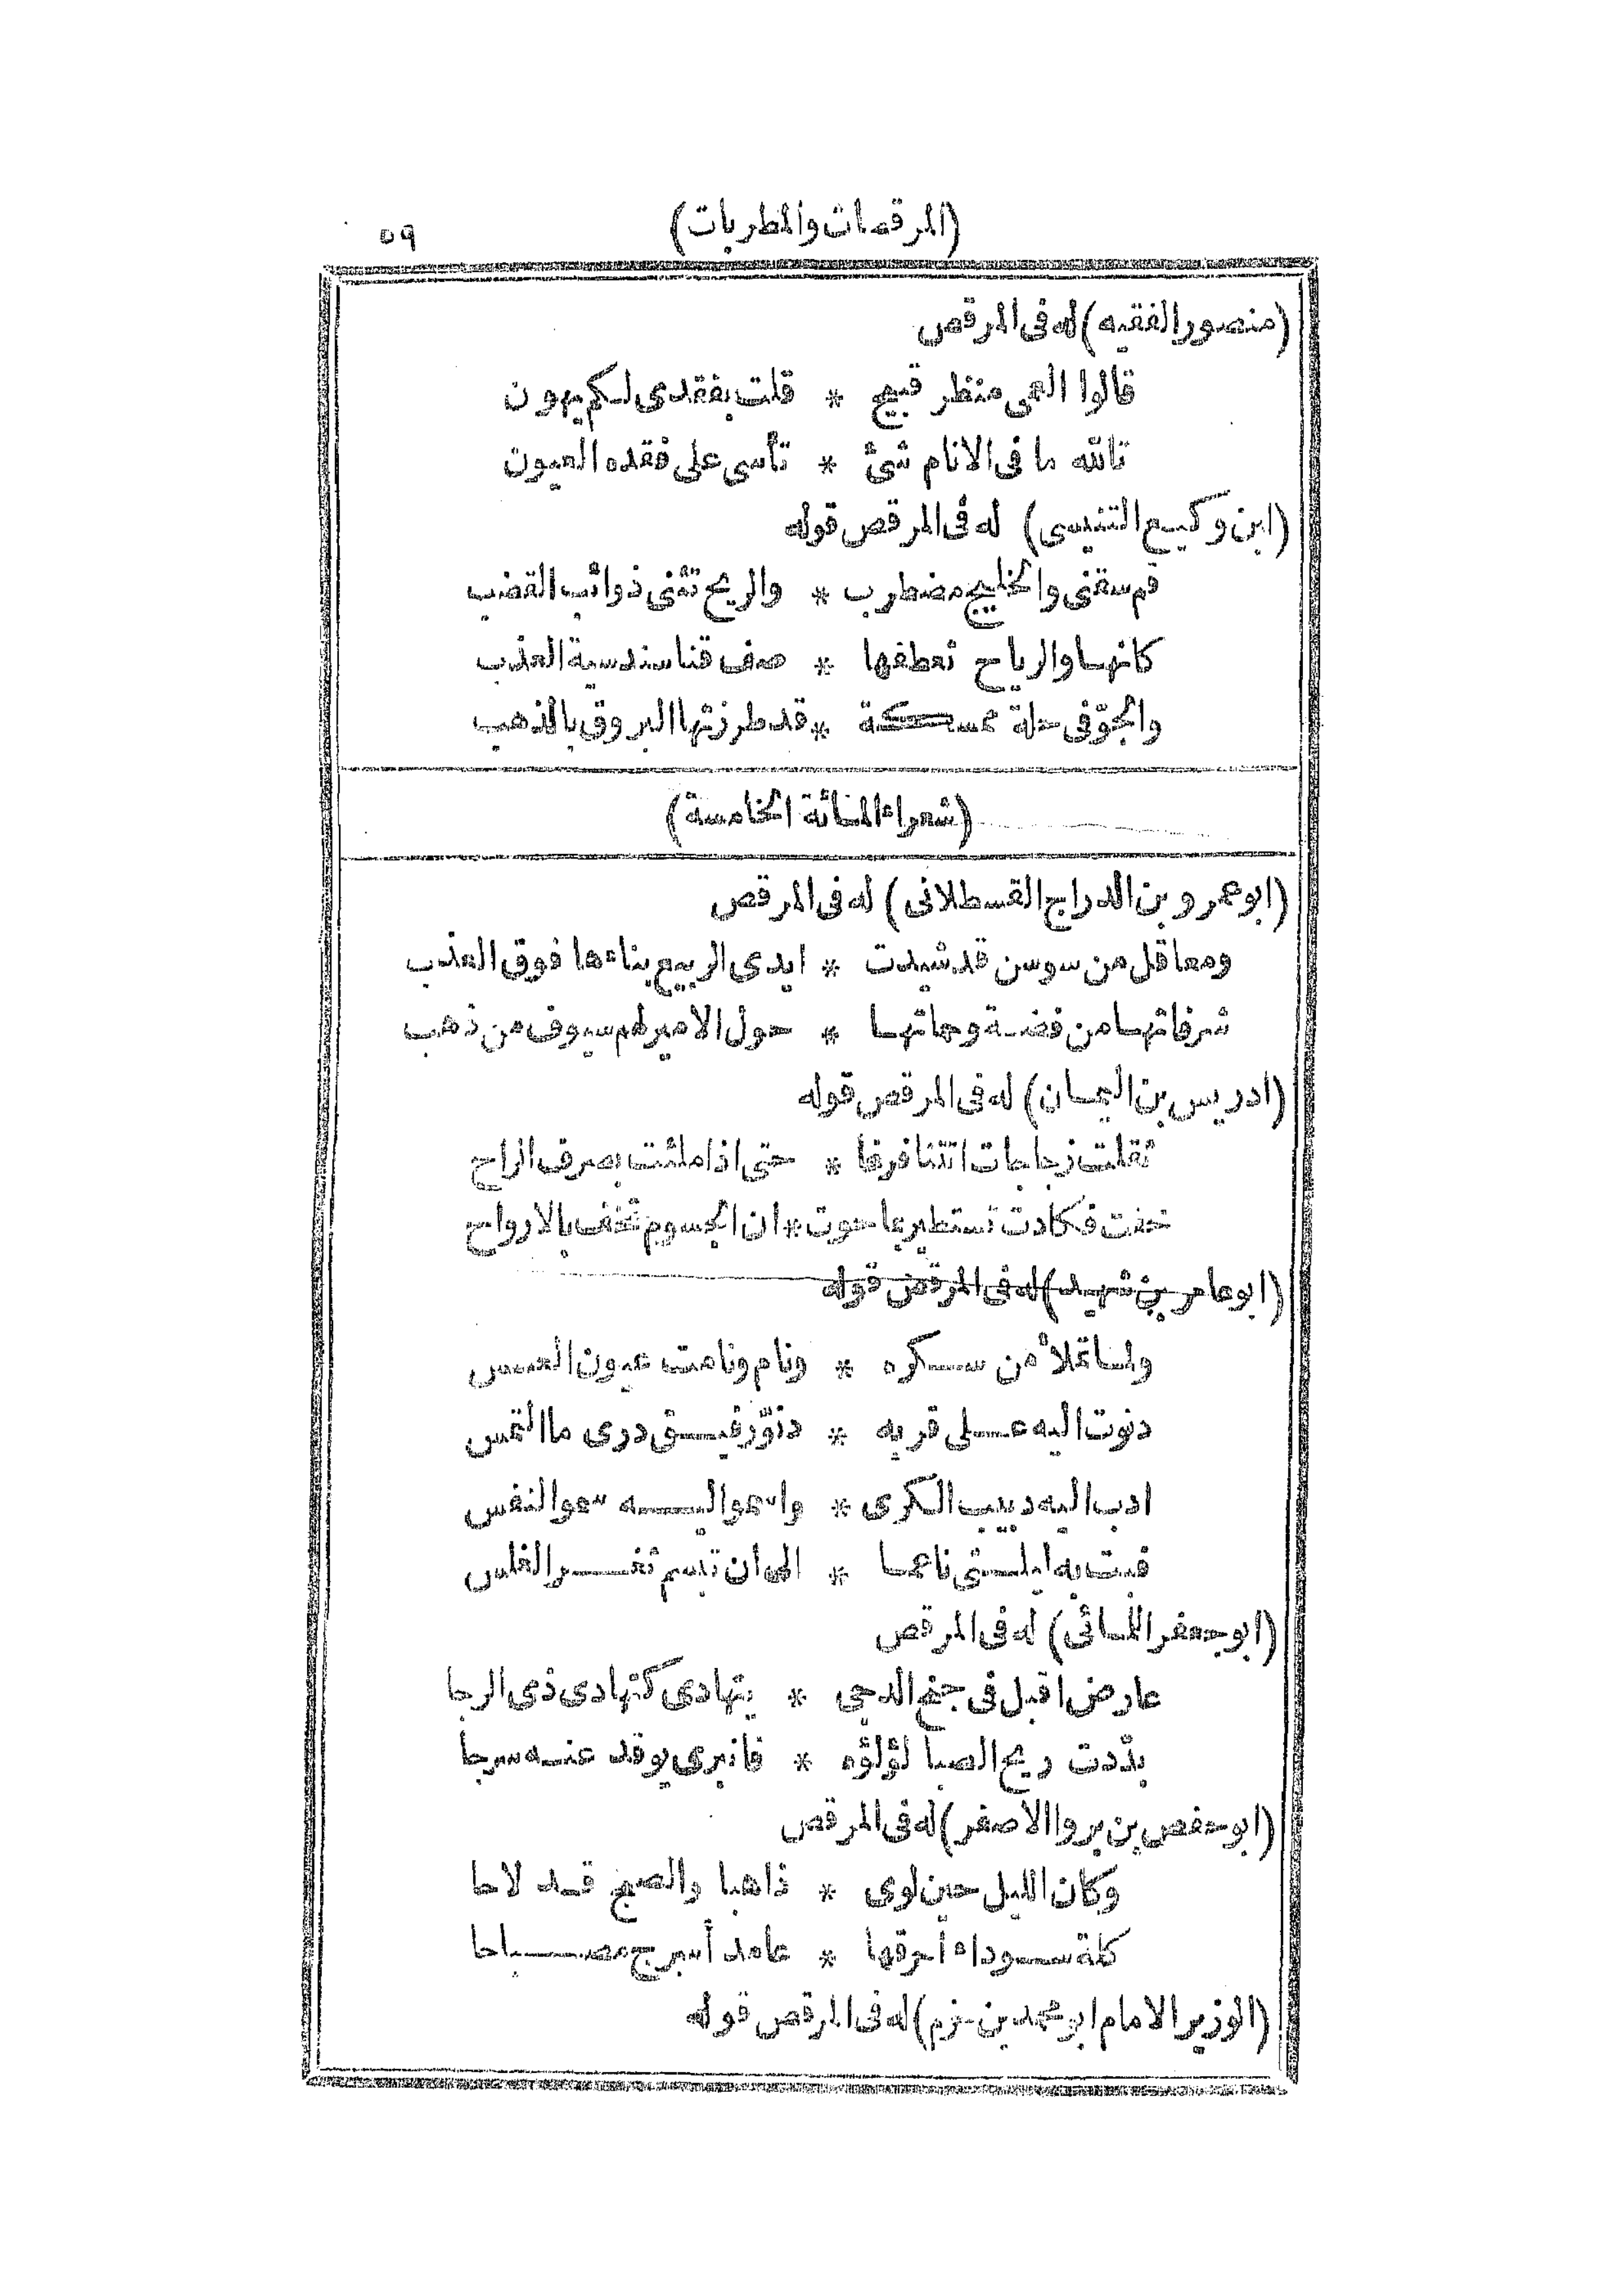 (المرقصات والمطربات)
٥٩
(منصور الفقيه) له فى المرقص
قالوا العمى منظر قبيح * قلت بفقدى لكم يهون
تالله ما فى الانام شئ * تأسى على فقده العيون
(ابن وكيع التنيسى) له فى المرقص قوله
قم سقنى والخليج مضطرب * والريح تثنى ذوائب القضب
كانها والرياح تعطفها * صف قنا سندسية العذب
والجوّ فى حلة ممسكة * قد طرزتها البروق بالذهب
(شعراء المائة الخامسة)
(ابو عمرو بن الدراج القسطلانى) له فى المرقص
ومعاقل من سوسن قد شيدت * ايدى الربيع بناءها فوق العذب
شرفاتها من فضة وحماتها * حول الامير لهم سيوف من ذهب
(ادريس بن اليمان) له فى المرقص قوله
ثقلت زجاجات اتتنا فرغا * حتى اذا ملئت بصرف الراح
خفت فكادت تستطير بما حوت * ان الجسوم تخف بالارواح
(ابو عامر بن شهيد) له فى المرقص قوله
ولما تملأ من سكره * ونام ونامت عيون العسس
دنوت اليه على قربه * دنوّ رفيق درى ما التمس
ادب اليه دبيب الكرى * واسمو اليه سمو النفس
فبت به ليلتى ناعما * الى ان تبسم ثغر الغلس
(ابو جعفر اللمائى) له فى المرقص
عارض اقبل فى جنح الدجى * يتهادى كتهادى ذى الرجا
بدّدت ريح الصبا لؤلؤه * فانبرى يوقد عنه سرجا
(ابو حفص بن بروا الاصفر) له فى المرقص
وكان الليل حين لوى * ذاهبا والصبح قد لاحا
كلة سوداء أحرقها * عامد أسرج مصباحا
(الوزير الامام ابو محمد بن حزم) له فى المرقص قوله